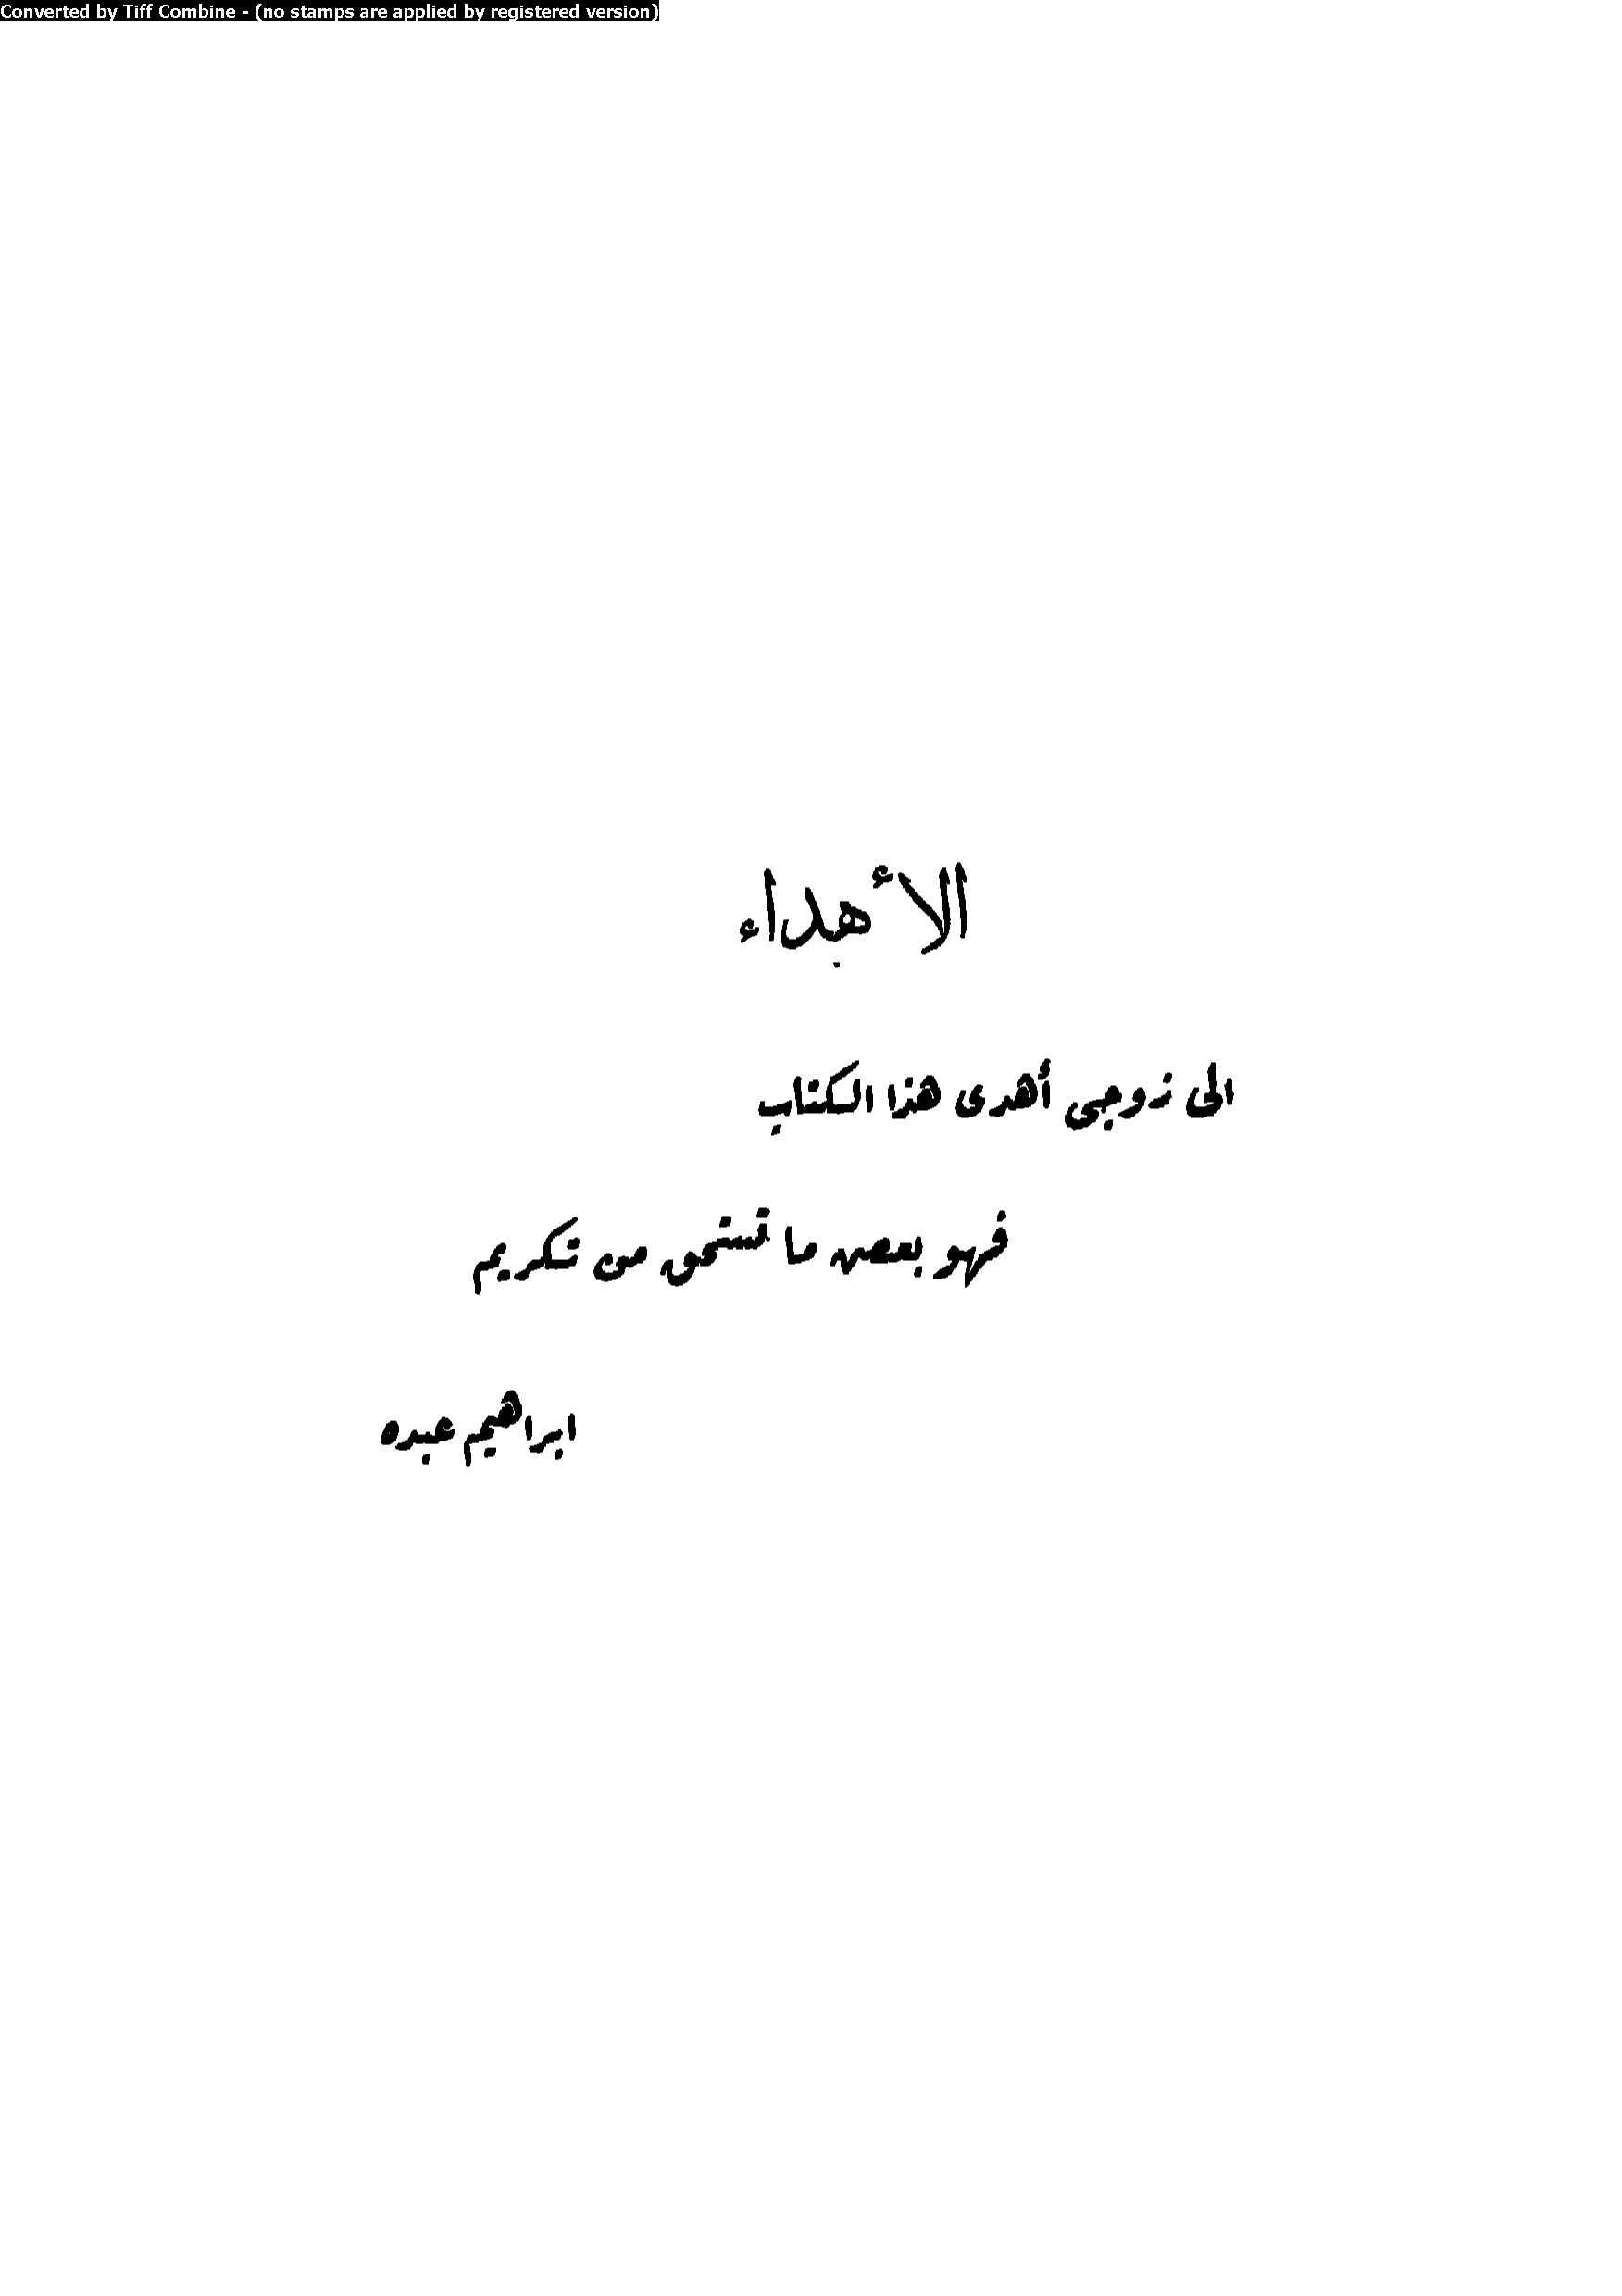 Converted by Tiff Combine - (no stamps are applied by registered version)
الأهداء
الى زوجى أهدى هذا الكتاب
فهو بعض ما تستحق من تكريم
ابراهيم عبده